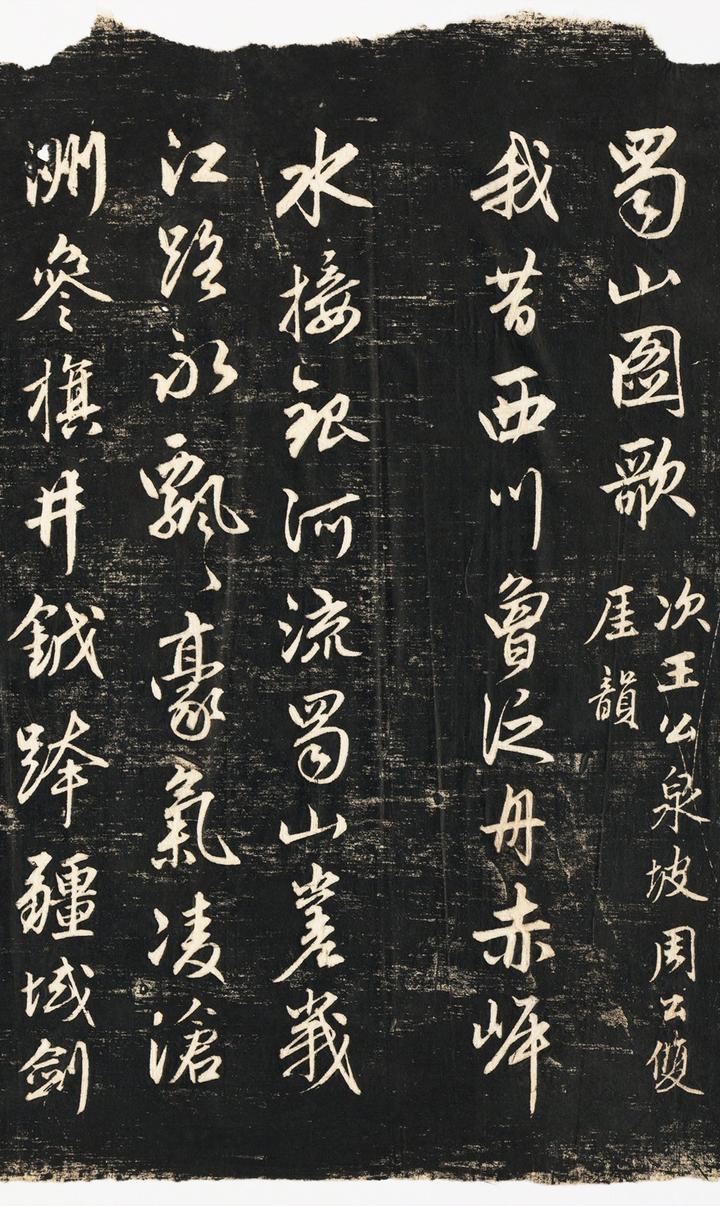 蜀山圖歌
次王公泉坡周公雙
厓韻
我昔西川曾泛舟赤岸
水接銀河流蜀山嵳峩
江路永飄飄豪氣凌滄
洲參旗井鉞跨疆域劍